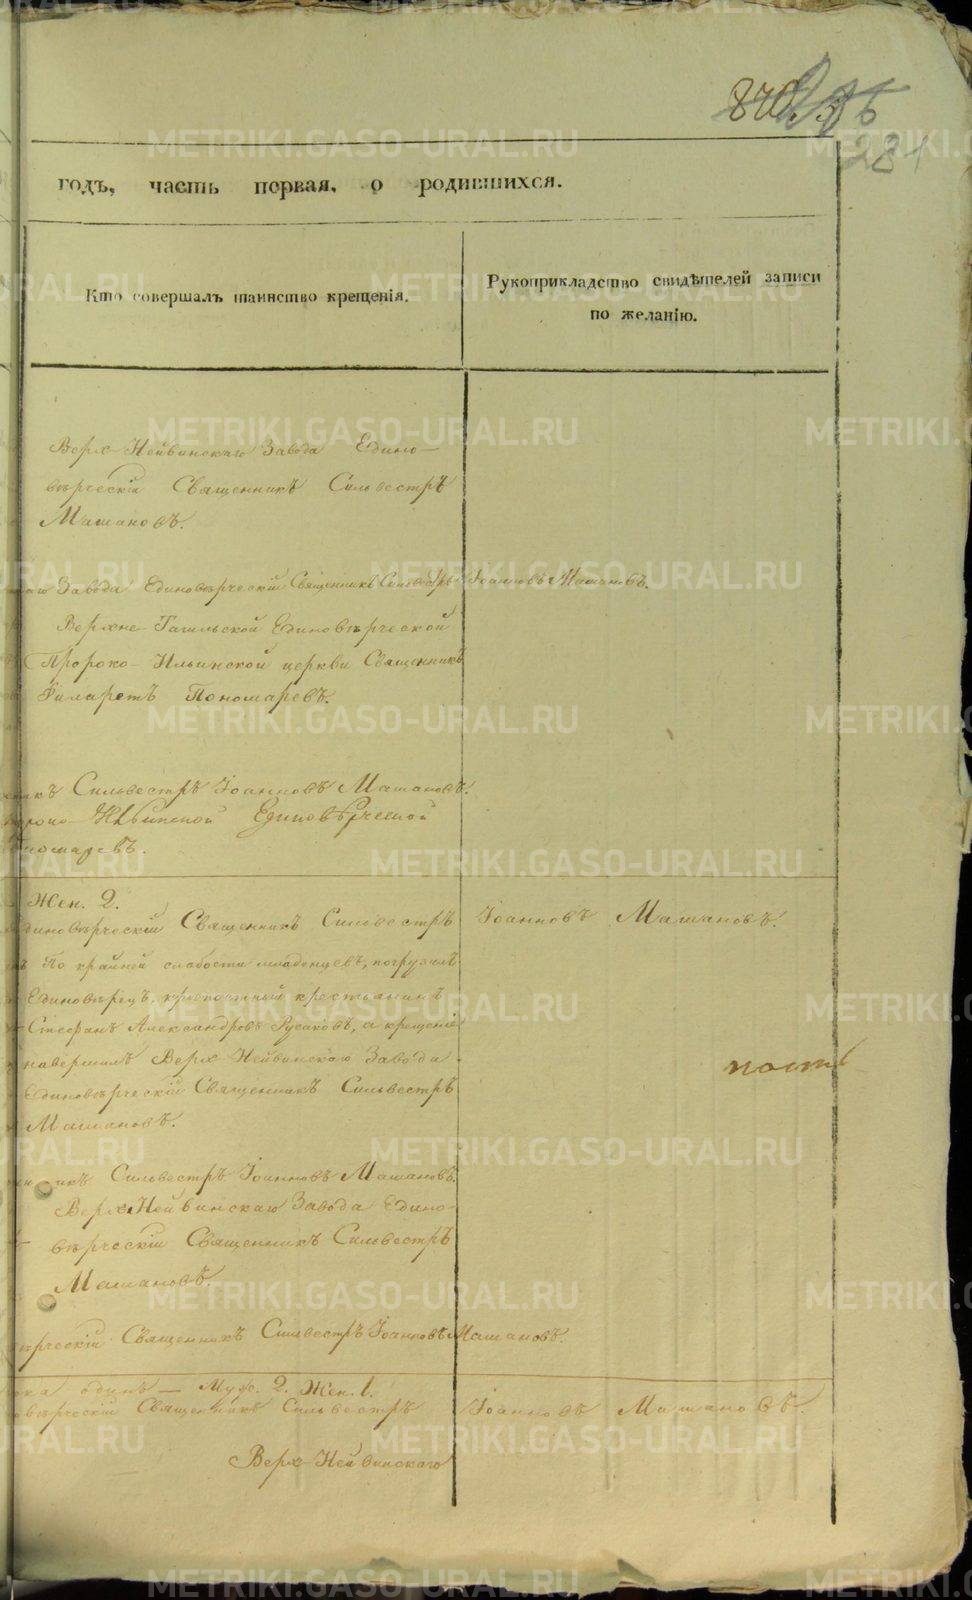 870.
281
годъ, часть первая, о родившихся.
Кто совершалъ таинство крещенія.
Рукоприкладство свидѣтелей записи
по желанію.
Верх-Нейвинскаго Завода Едино-
вѣрческій Священникъ Сильвестръ
Машановъ.
Завода Единовѣрческій Священникъ Сильвестръ Іоанновъ Машановъ.
Верхне-Тагильской Единовѣрческой
Пророко-Ильинской церкви Священникъ
Филаретъ Пономаревъ.
Сильвестръ Іоанновъ Машановъ.
Ильинской Единовѣрческой
Жен. 2.
Священникъ Сильвестръ Іоанновъ Машановъ.
По крайней слабости младенцевъ, погрузилъ
Единовѣрецъ, крѣпостный крестьянинъ
Стефанъ Александровъ Русаковъ, а крещеніе
навершилъ Верх-Нейвинскаго Завода
Единовѣрческій Священникъ Сильвестръ
Машановъ.
Сильвестръ Іоанновъ Машановъ.
Верх-Нейвинскаго Завода Едино-
вѣрческій Священникъ Сильвестръ
Машановъ.
Священникъ Сильвестръ Іоанновъ Машановъ.
одинъ — Муж. 2. Жен. 1.
Священникъ Сильвестръ Іоанновъ Машановъ.
Верх-Нейвинскаго
METRIKI.GASO-URAL.RU